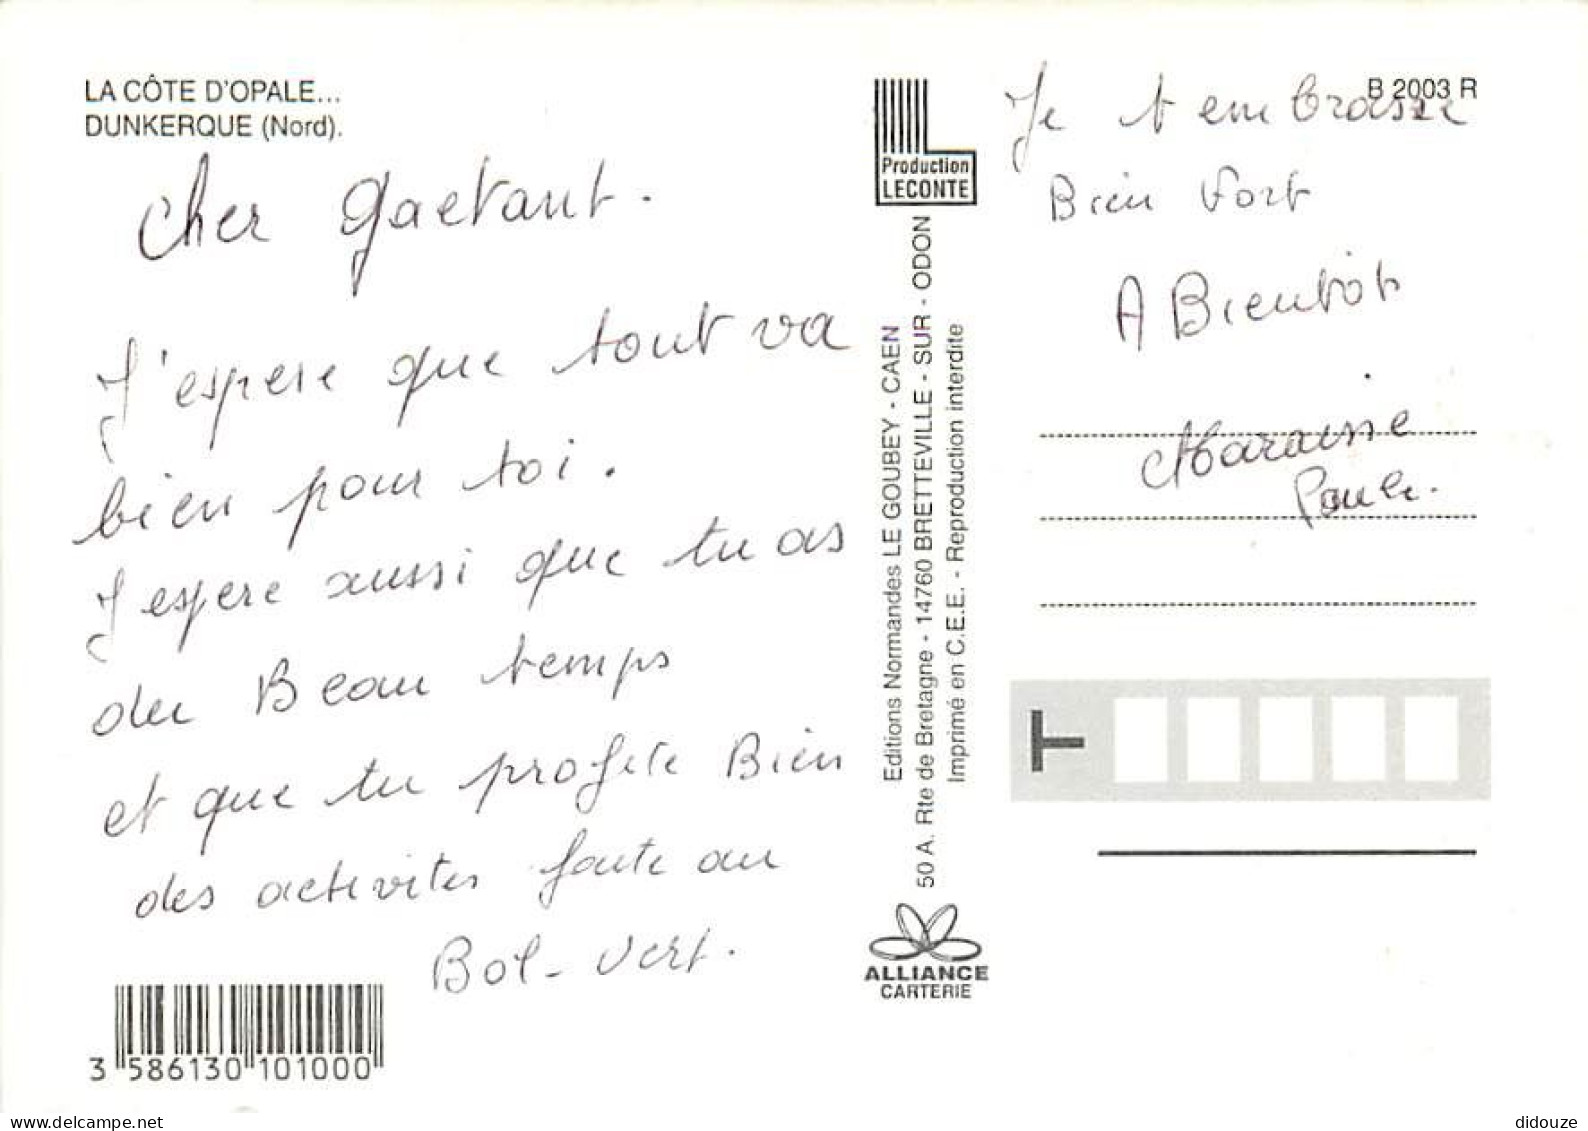 LA CÔTE D'OPALE...
DUNKERQUE (Nord).
Cher gaetant.
J'espere que tout va
bien pour toi.
J espere aussi que tu as
du Beau temps
et que tu profite Bien
des activites faite au
Bol-vert.
3 586130 101000
Production
LECONTE
Editions Normandes LE GOUBEY - CAEN
50 A. Rte de Bretagne - 14760 BRETTEVILLE - SUR - ODON
Imprimé en C.E.E. - Reproduction interdite
ALLIANCE
CARTERIE
B 2003 R
Je t embrasse
Bien fort
A Bientôt
T
www.delcampe.net
didouze